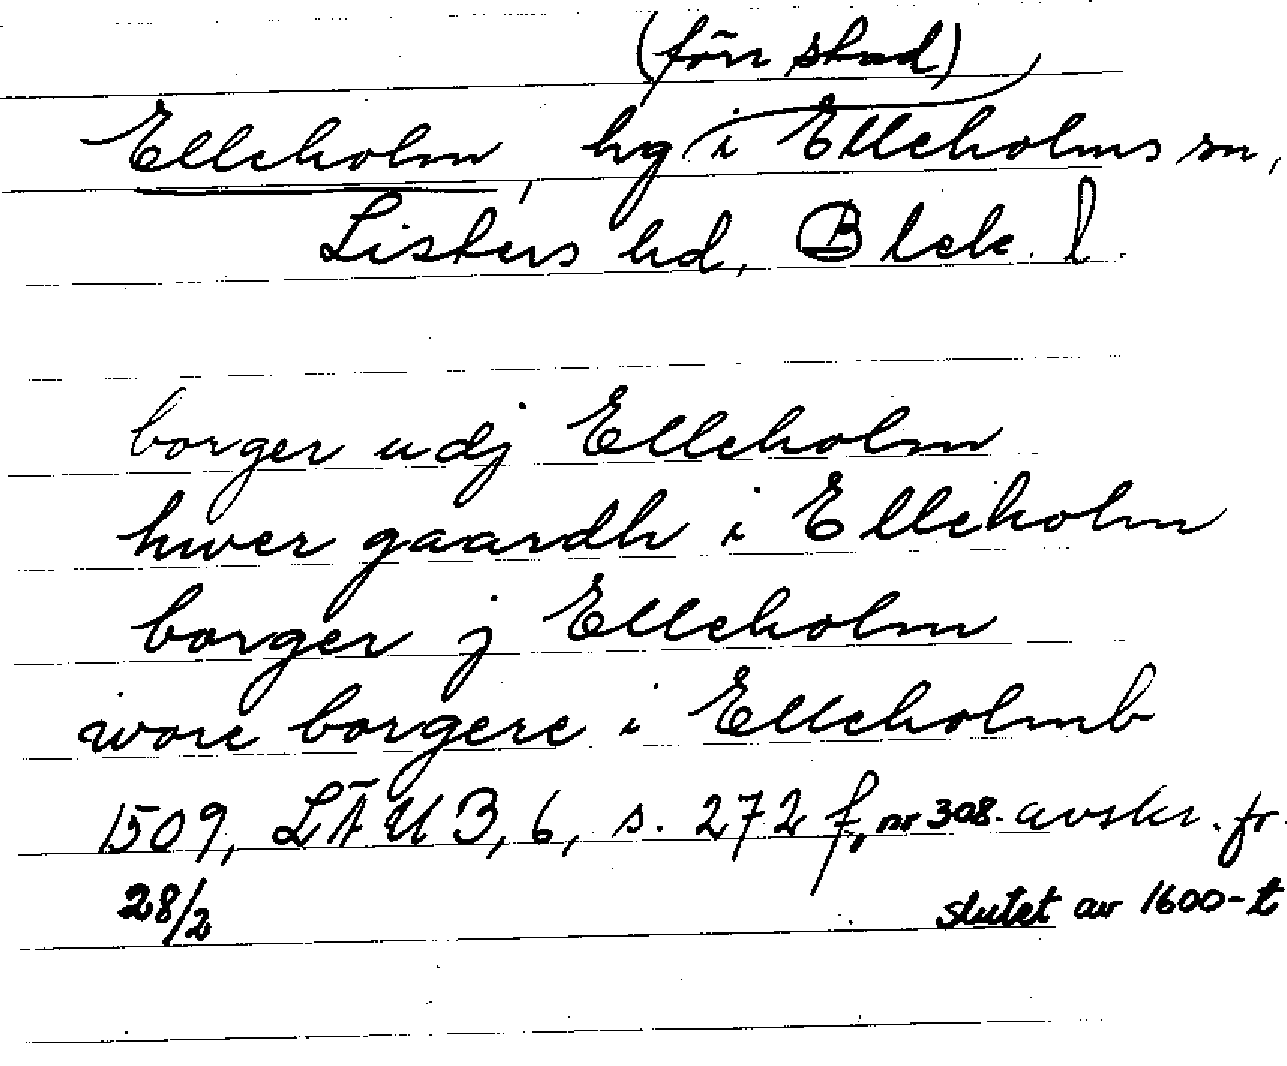 (förr stad)
Elleholm, hg i Elleholms sn,
Listers hd, Blek. l.
borger udj Elleholm
hwer gaardh i Elleholm
borger j Elleholm
wore borgere i Elleholmb
1509, LÄU 3, 6, s. 272 f, nr 308. avskr. fr.
28/2 slutet av 1600-t